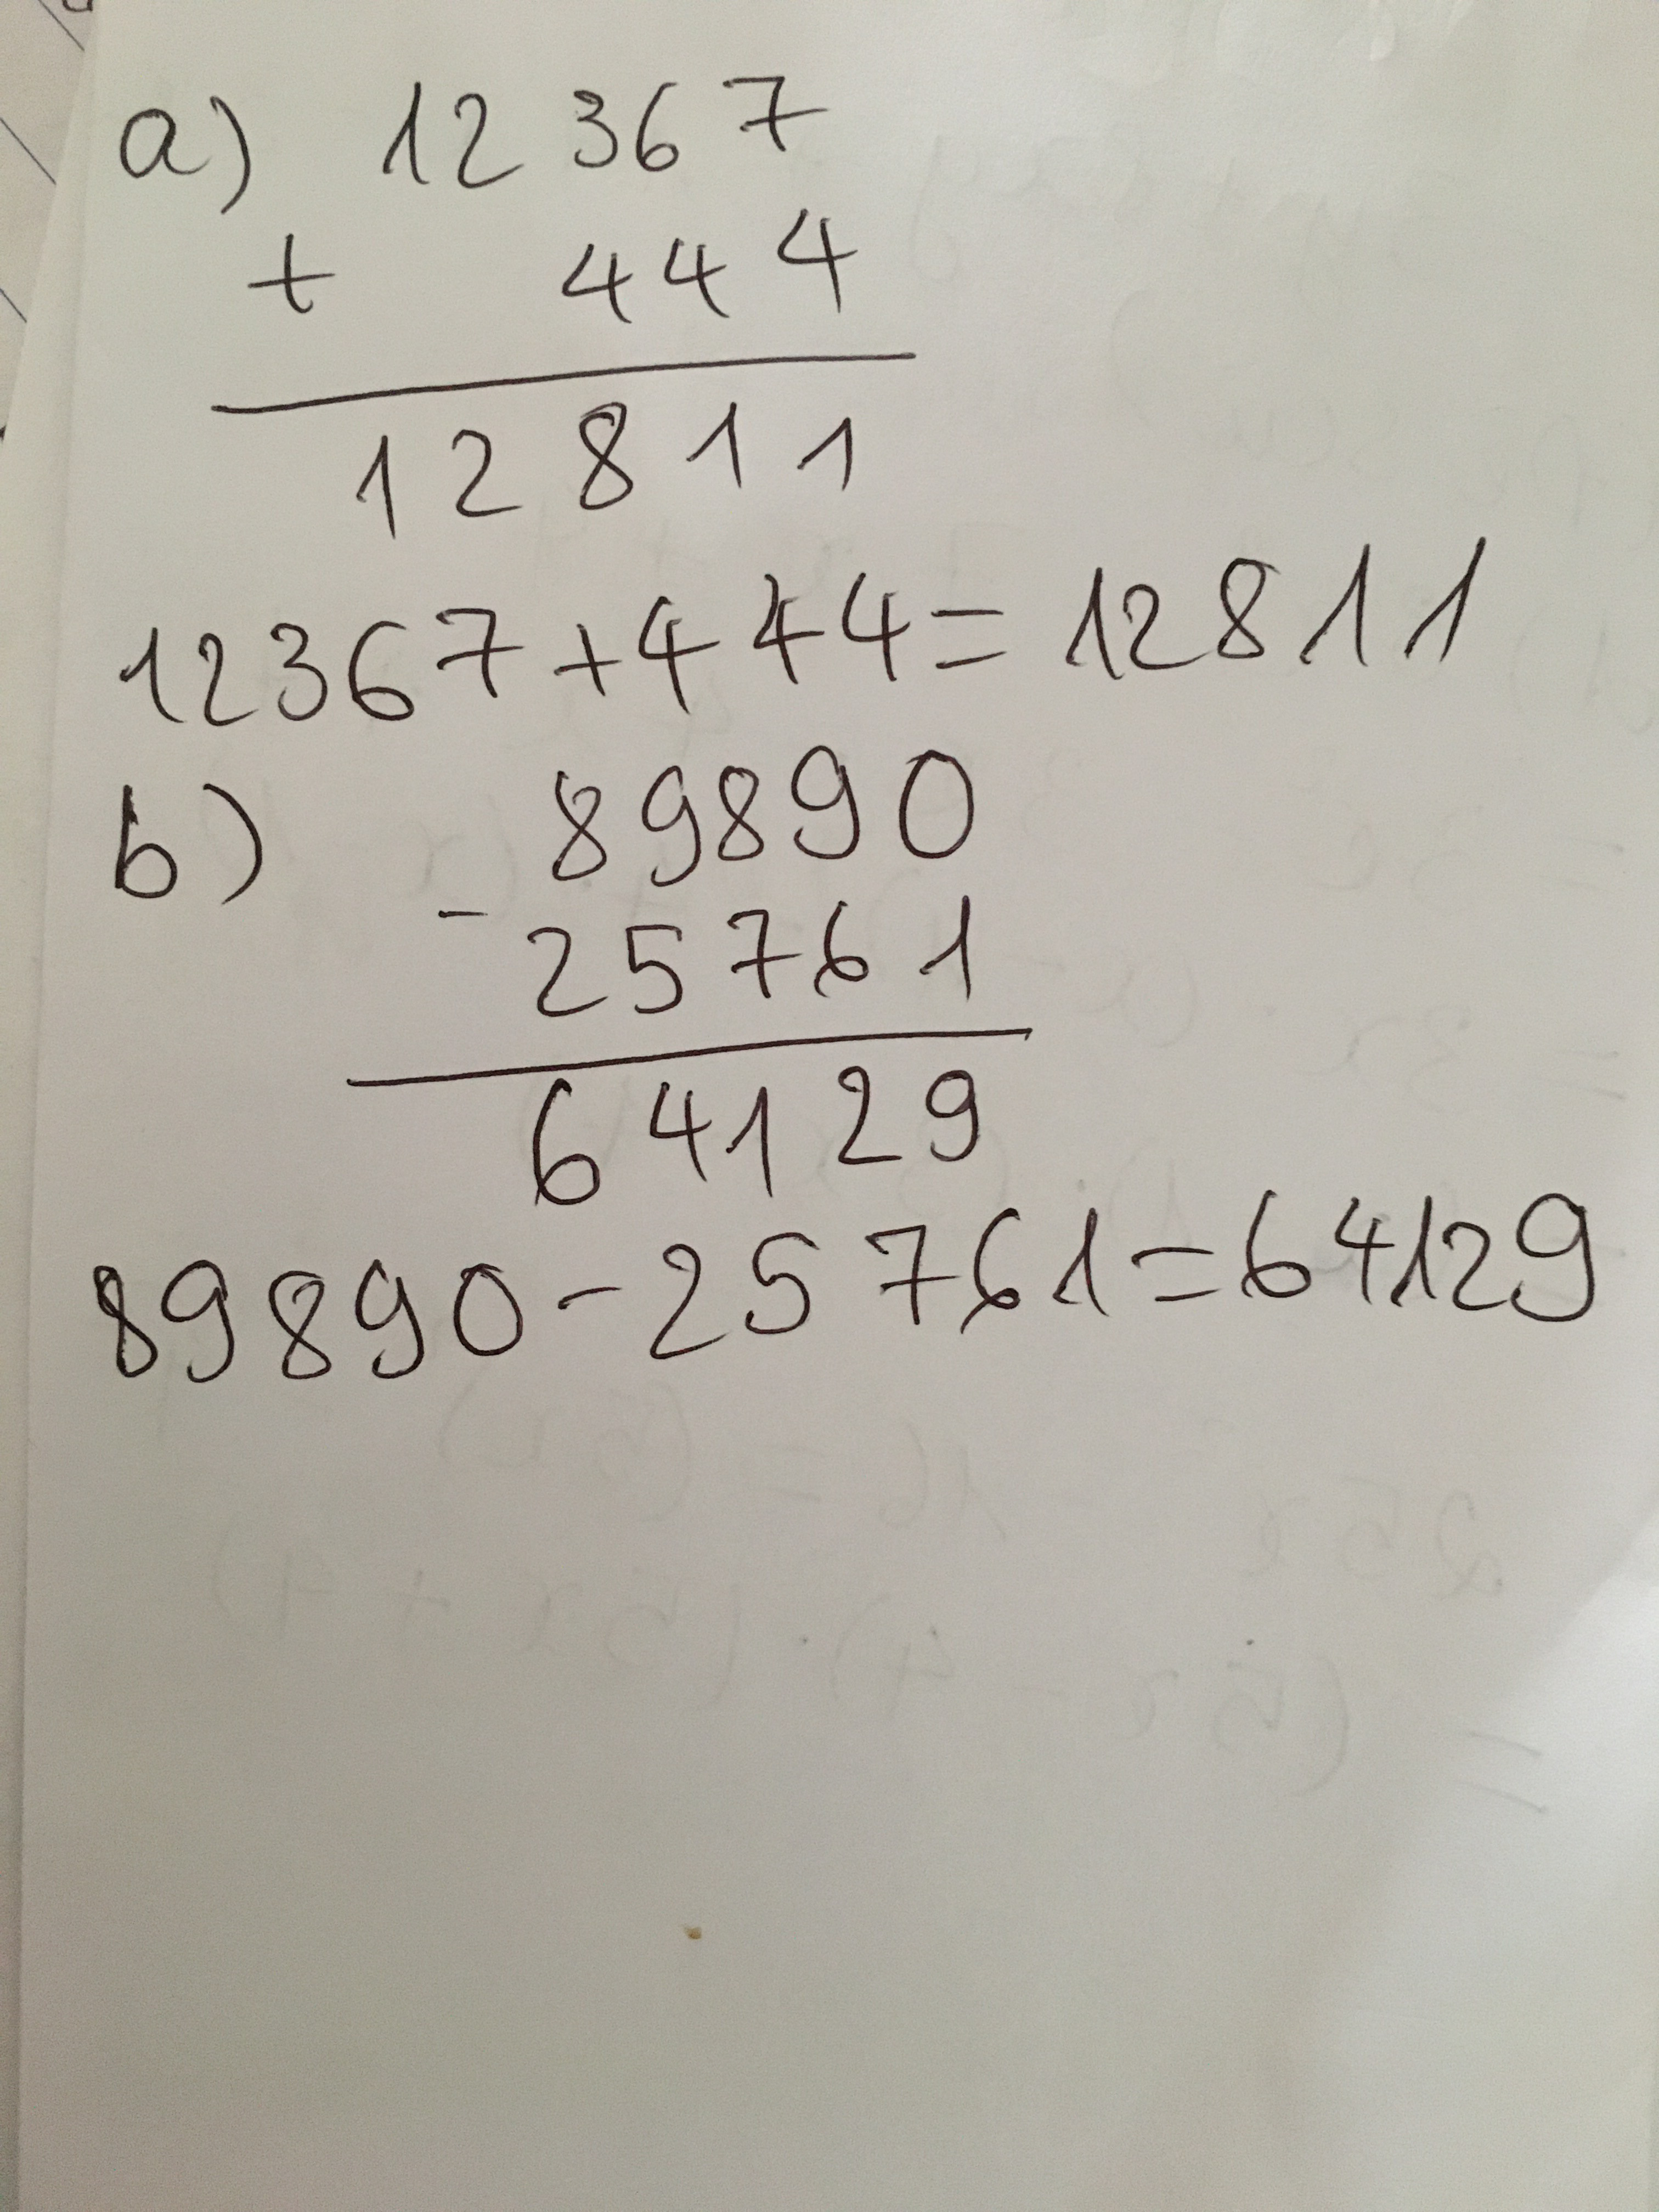 a) 12367
+ 444
12811
12367+444=12811
b) 89890
- 25761
64129
89890-25761=64129